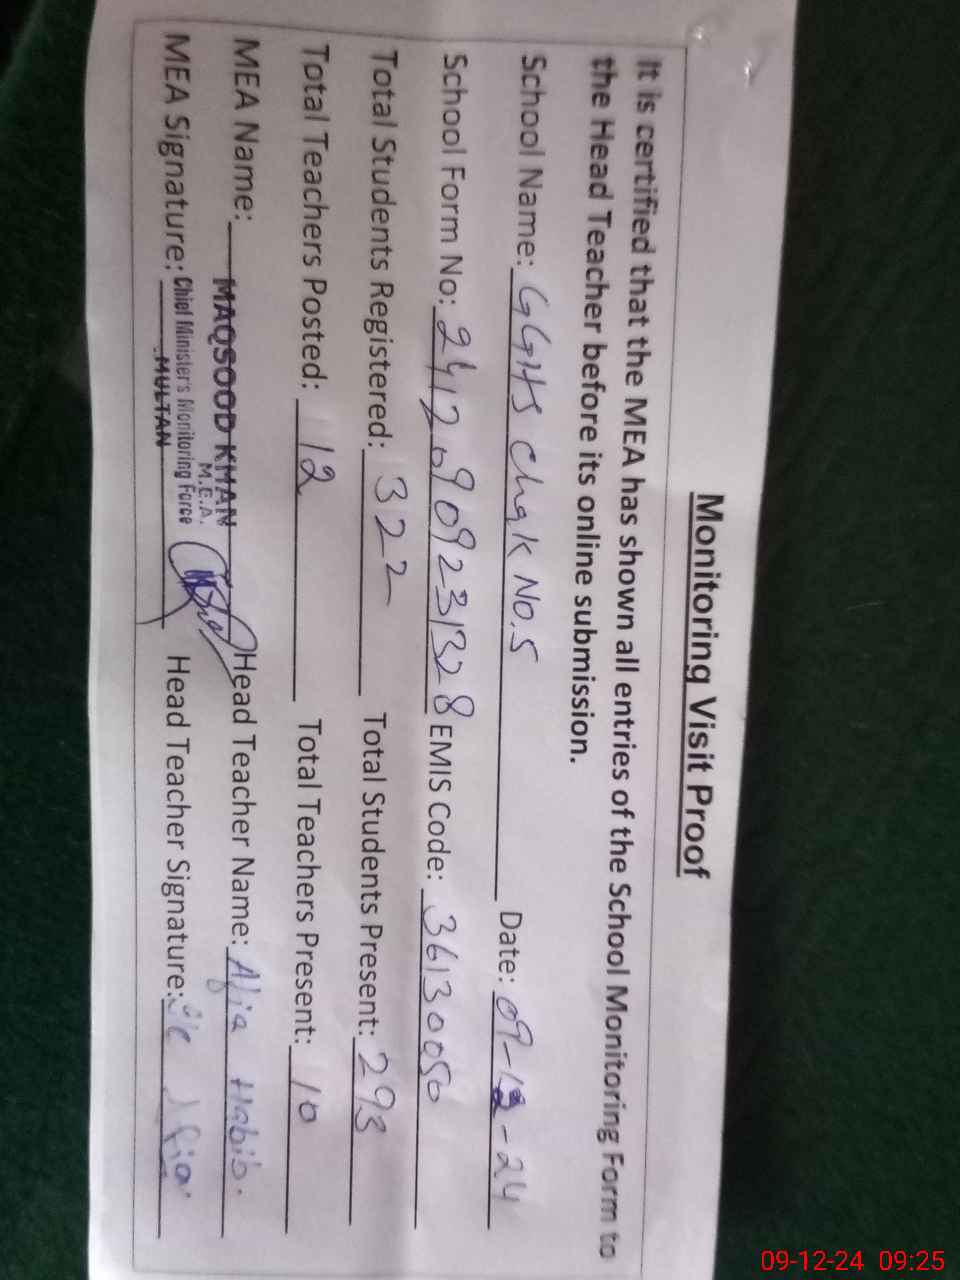 Monitoring Visit Proof
It is certified that the MEA has shown all entries of the School Monitoring Form to
the Head Teacher before its online submission.
School Name: GGHS Chak No.5 Date: 09-12-24
School Form No: 24120909231328 EMIS Code: 36130050
Total Students Registered: 322 Total Students Present: 293
Total Teachers Posted: 12 Total Teachers Present: 10
MEA Name: MAQSOOD KHAN Head Teacher Name: Habib.
M.E.A.
MEA Signature: Chief Minister's Monitoring Force Head Teacher Signature:
MULTAN
09-12-24 09:25